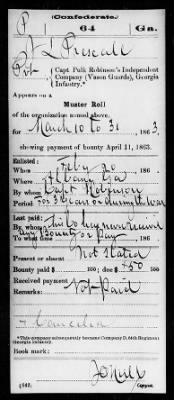 (Confederate.)
P 64 Ga.
Pvt., Capt. Fulk Robinson's Independent
Company (Vason Guards), Georgia
Infantry.*
Appears on a
Muster Roll
of the organization named above,
for March 10 to 31, 1863.
showing payment of bounty April 11, 1863.
Enlisted:
When Feby 20, 186
Where Albany Ga
By whom Capt Robinson
Period for 3 Years or during the war
Last paid:
By whom This Co. have never received
any Bounty or pay
To what time 186
Present or absent Not Stated
Bounty paid $ 100; due $ 50 100
Received payment
Remarks: Not Paid
*This company subsequently became Company D, 64th Regiment
Georgia Infantry.
Book mark:
(642) Copyist.